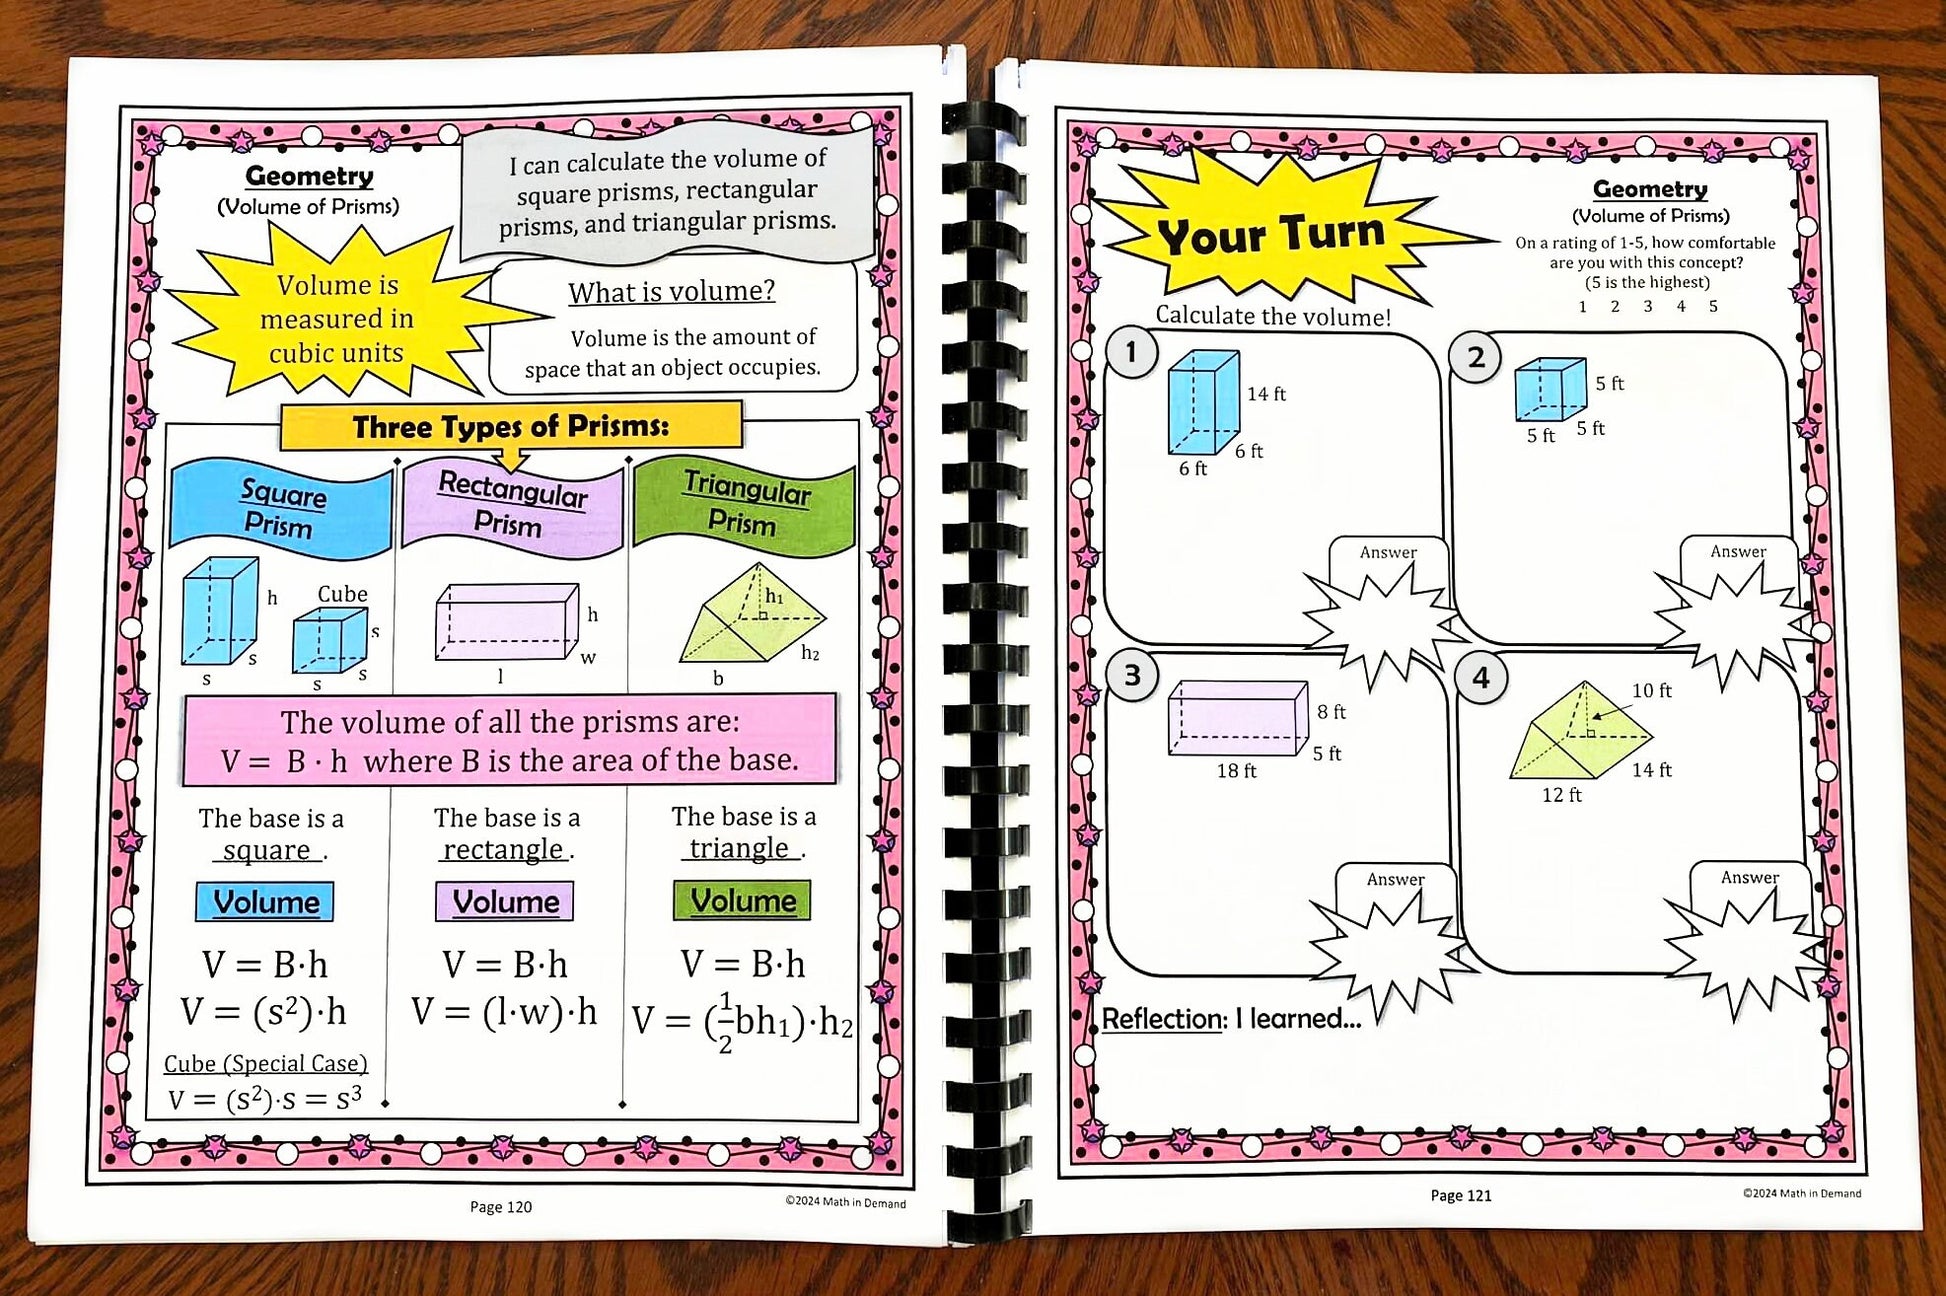 Geometry
(Volume of Prisms)
I can calculate the volume of
square prisms, rectangular
prisms, and triangular prisms.
Volume is
measured in
cubic units
What is volume?
Volume is the amount of
space that an object occupies.
Three Types of Prisms:
Square
Prism
h
s
s
Cube
s
s
s
Rectangular
Prism
h
w
l
Triangular
Prism
h₁
h₂
b
The volume of all the prisms are:
V = B · h where B is the area of the base.
The base is a
square .
Volume
V = B·h
V = (s²)·h
Cube (Special Case)
V = (s²)·s = s³
The base is a
rectangle .
Volume
V = B·h
V = (l·w)·h
The base is a
triangle .
Volume
V = B·h
V = (½bh₁)·h₂
Page 120
©2024 Math in Demand
Your Turn
Geometry
(Volume of Prisms)
On a rating of 1-5, how comfortable
are you with this concept?
(5 is the highest)
1 2 3 4 5
Calculate the volume!
1
14 ft
6 ft
6 ft
Answer
2
5 ft
5 ft
5 ft
Answer
3
8 ft
5 ft
18 ft
Answer
4
10 ft
14 ft
12 ft
Answer
Reflection: I learned...
Page 121
©2024 Math in Demand